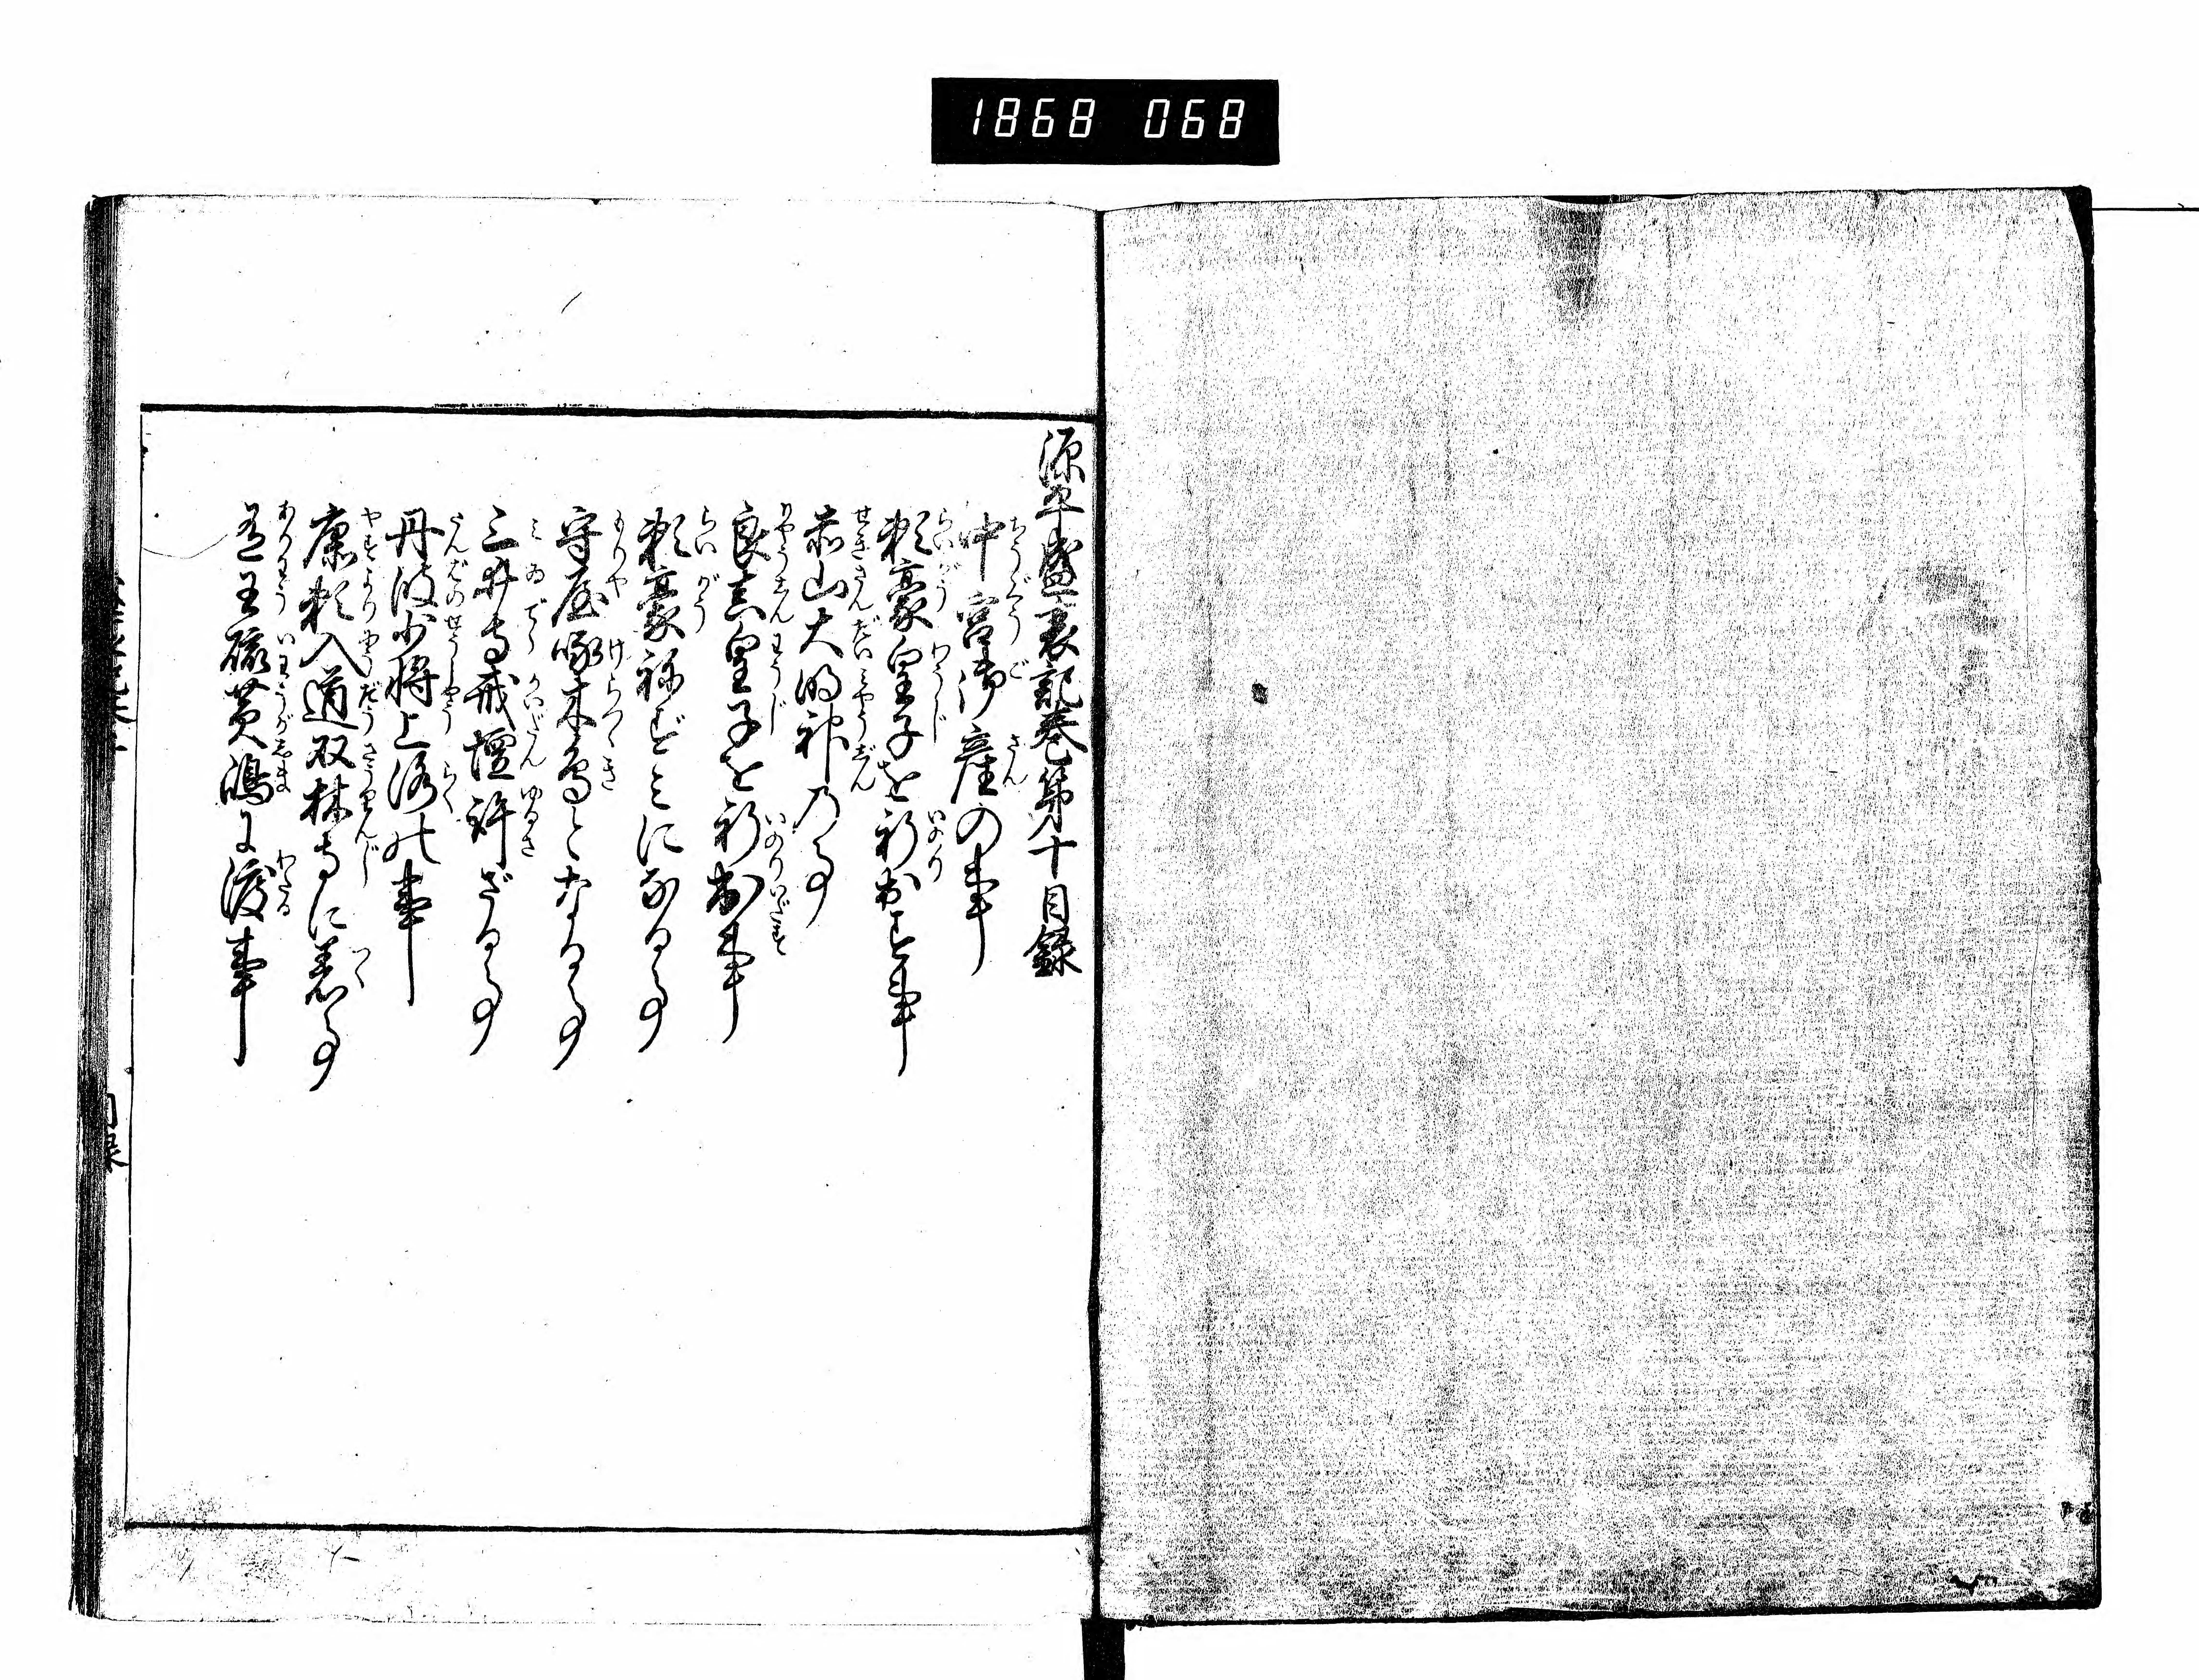 1868 068
源平盛衰記巻第十目録
中宮御産の事
頼豪皇子を祈出す事
赤山大明神乃事
良真皇子を祈出事
頼豪祢ずミになる事
守屋啄木鳥となる事
三井寺戒壇許ざる事
丹波少将上洛の事
康頼入道双林寺に着事
有王硫黄嶋に渡事